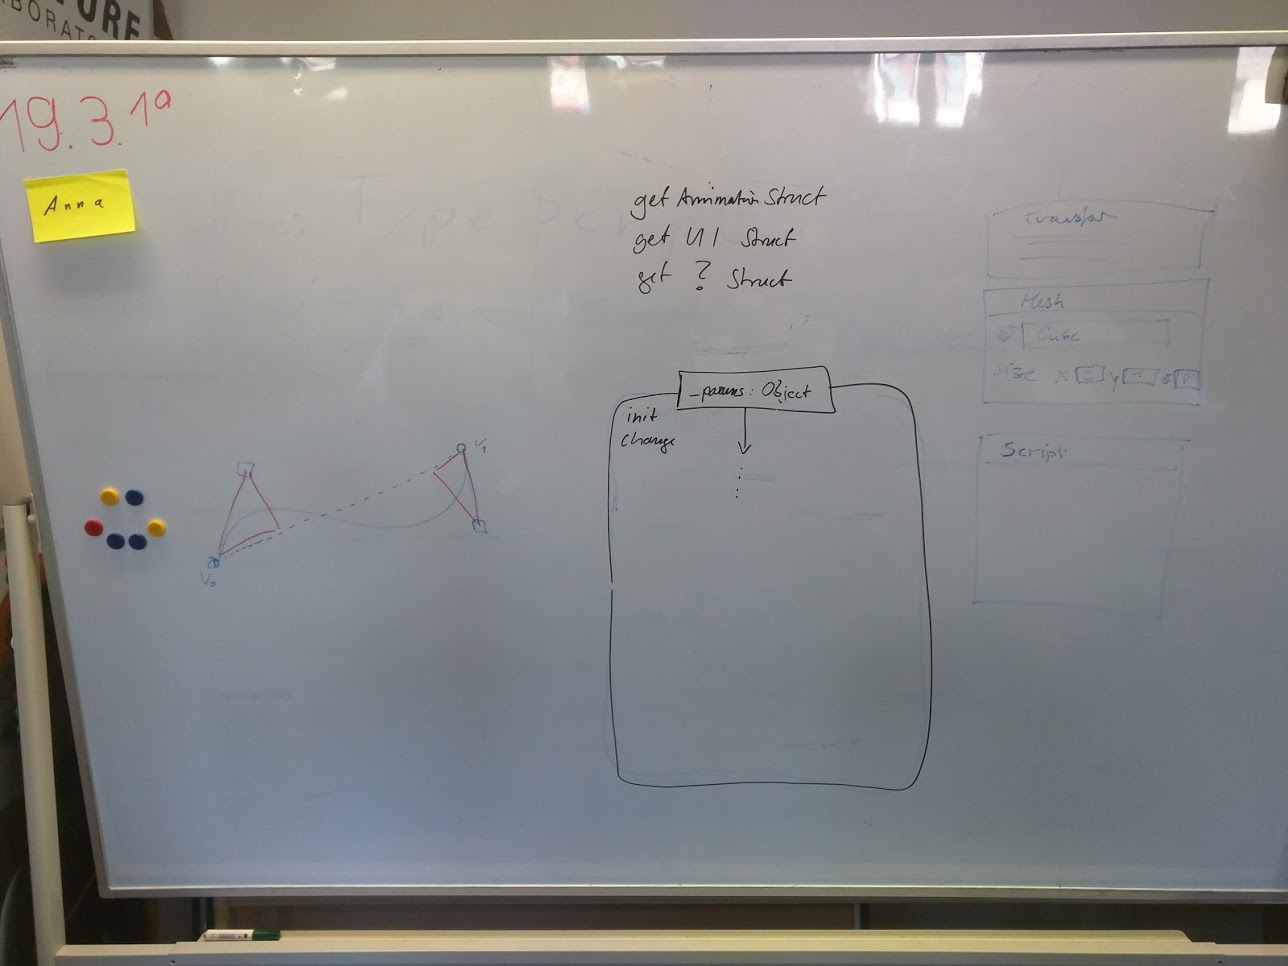 TURE
BORATO
19.3.19
Anna
get Animation Struct
get UI Struct
get ? Struct
_params: Object
init
change
V0
V1
Transfor
Mesh
Cube
size X Y
Script